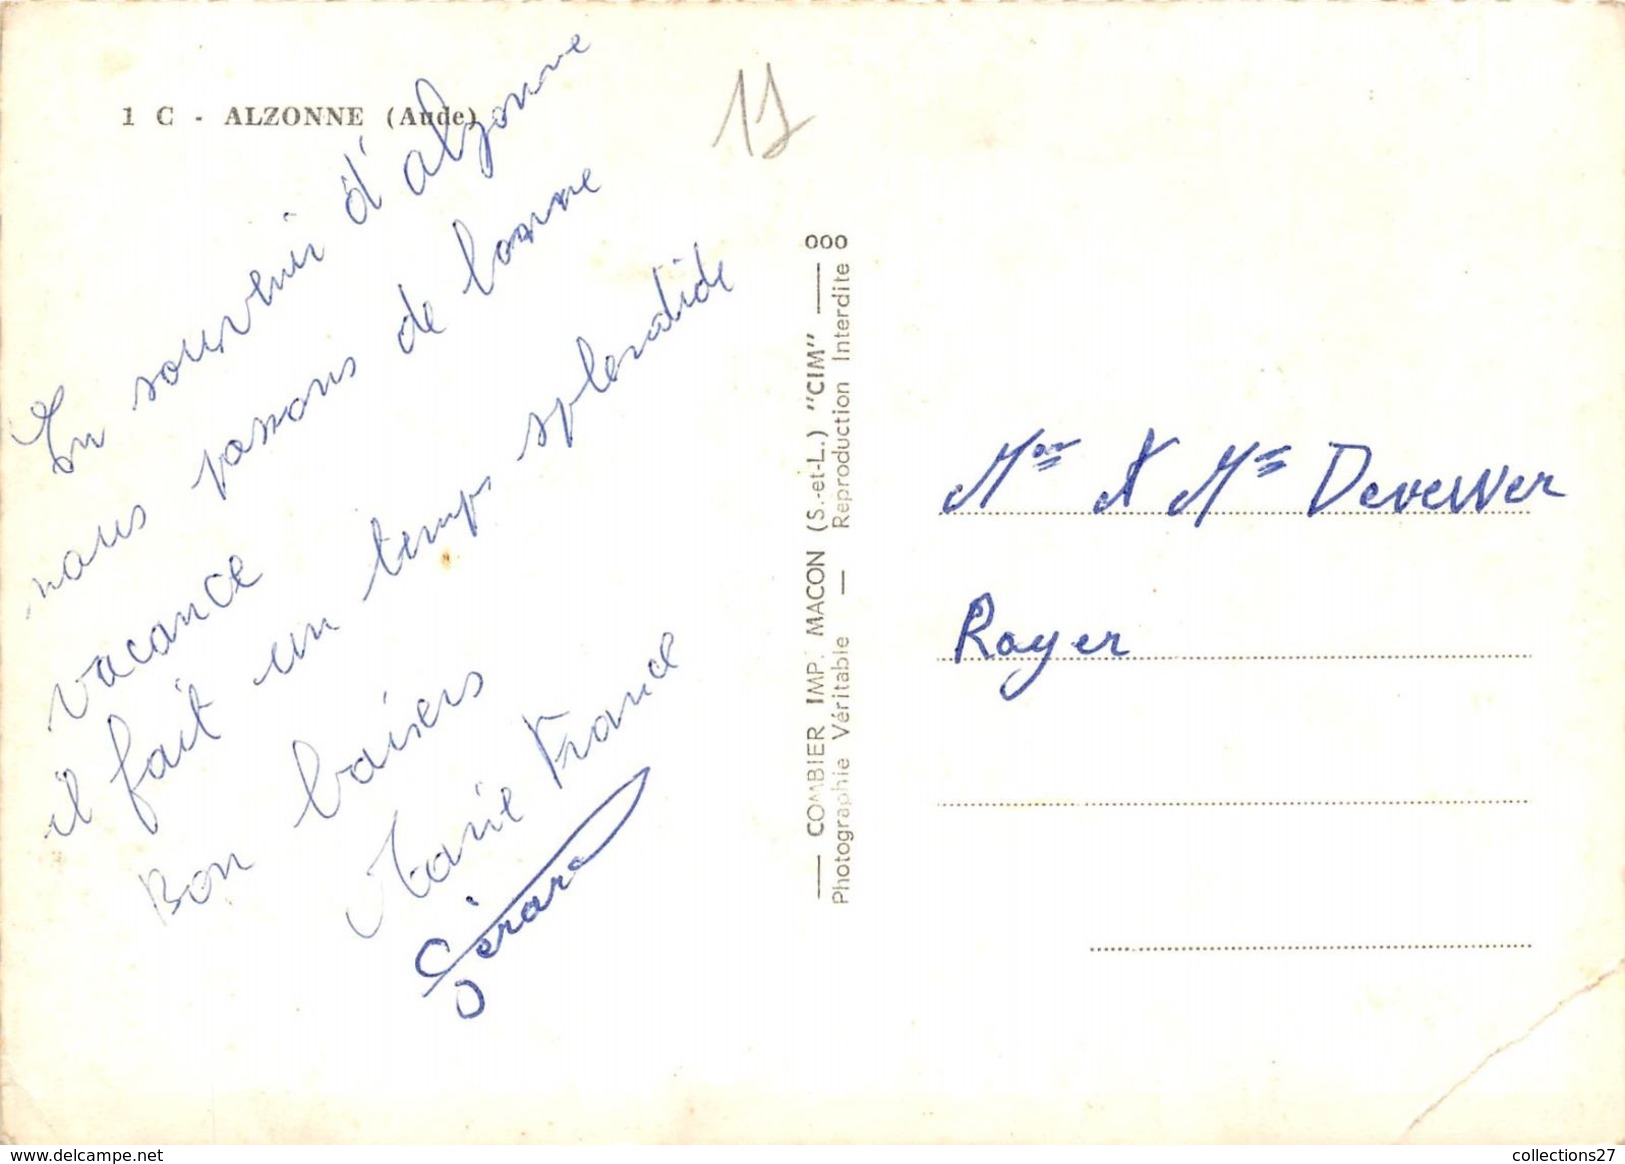 1 C - ALZONNE (Aude)
11
En souvenir d'alzonne
nous passons de bonne
vacance
il fait un temps splendide
Bon baisers
Marie France
Gérard
— COMBIER IMP. MACON (S.-et-L.) "CIM" — 000
Photographie Véritable — Reproduction Interdite
Mme
Royer
www.delcampe.net
collections27